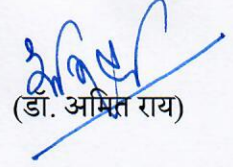 (डॉ. अमित राय)